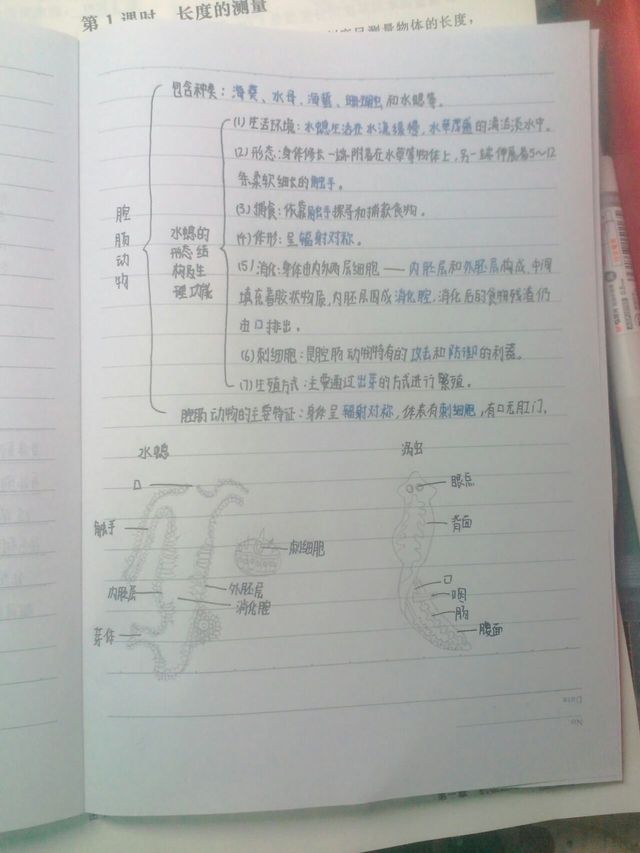 第1课时 长度的测量
测量物体的长度，
包含种类：海葵、水母、海蜇、珊瑚虫和水螅等。
腔肠动物
水螅的形态结构及生理功能
(1)生活环境：水螅生活在水流缓慢，水草茂盛的清洁淡水中。
(2)形态：身体修长一端附着在水草等物体上，另一端伸展着5～12
条柔软细长的触手。
(3)捕食：依靠触手探寻和捕获食物。
(4)体形：呈辐射对称。
(5)消化：身体由内外两层细胞——内胚层和外胚层构成，中间
填充着胶状物质，内胚层围成消化腔，消化后的食物残渣仍
由口排出。
(6)刺细胞：是腔肠动物特有的攻击和防御的利器。
(7)生殖方式：主要通过出芽的方式进行繁殖。
腔肠动物的主要特征：身体呈辐射对称，体表有刺细胞，有口无肛门。
水螅
涡虫
口
眼点
触手
背面
刺细胞
内胚层
外胚层
消化腔
芽体
口
咽
肠
腹面
Date
No